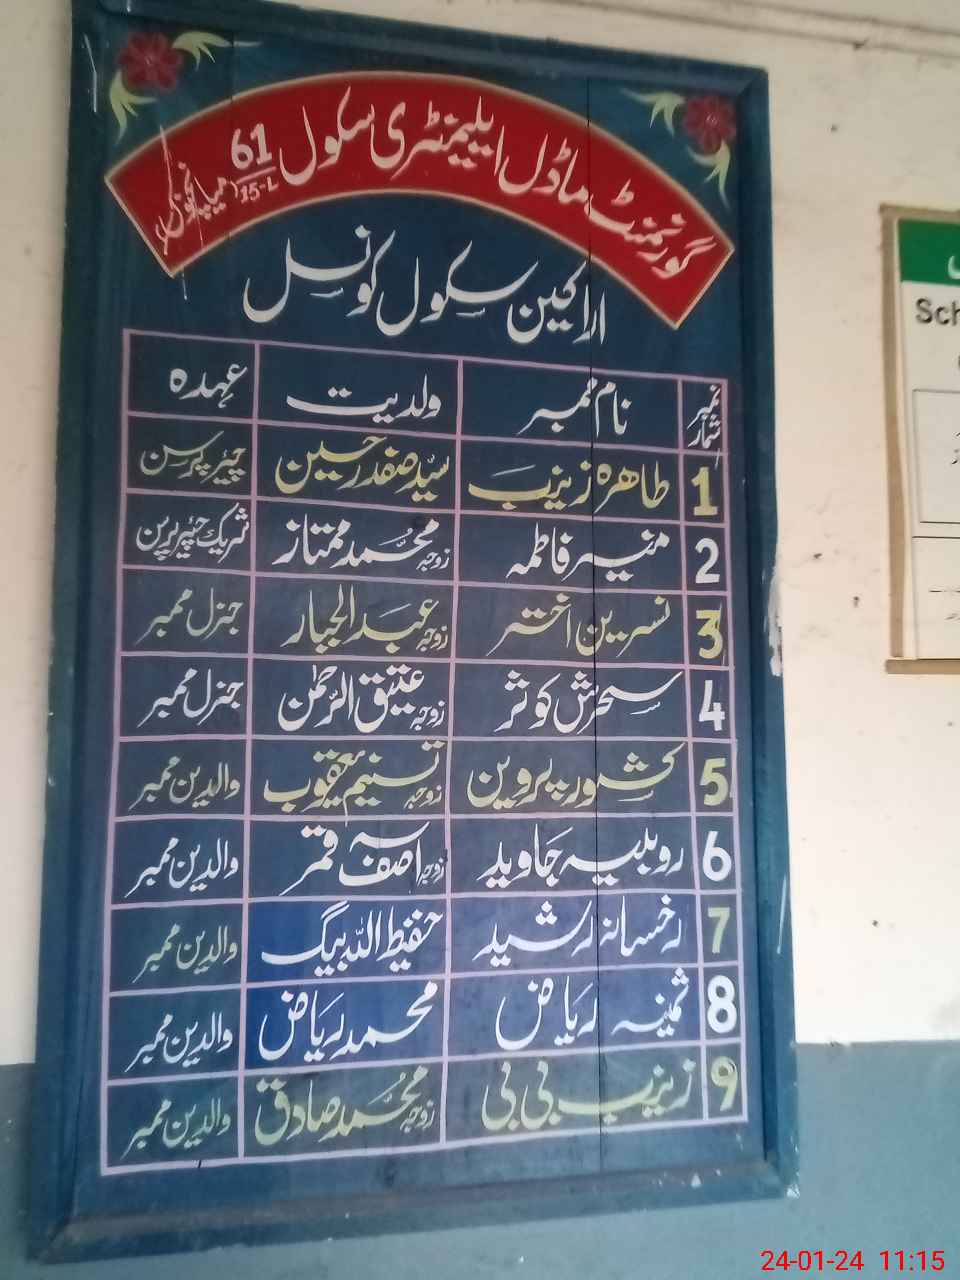 گورنمنٹ ماڈل ایلیمنٹری سکول 61/15-L
اراکین سکول کونسل
نمبر شمار نام ممبر ولدیت عہدہ
1 طاہرہ زینب سیّد صفدر حسین چیئر پرسن
2 منیر فاطمہ زوجہ محمد ممتاز شریک چیئر پرسن
3 نسرین اختر زوجہ عبدالجبار جنرل ممبر
4 سحرش کوثر زوجہ عتیق الرحمٰن جنرل ممبر
5 کشور پروین زوجہ تسنیم یعقوب والدین ممبر
6 روبیہ جاوید زوجہ آصف قمر والدین ممبر
7 رخسانہ رشید حفیظ اللہ بیگ والدین ممبر
8 ثمینہ ریاض محمد ریاض والدین ممبر
9 زینب بی بی زوجہ محمد صادق والدین ممبر
Sch
24-01-24 11:15